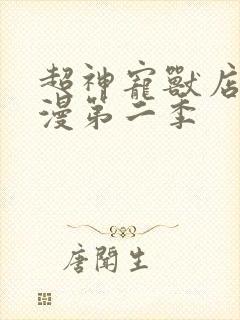 超神寵獸店
漫第二季
唐聞生